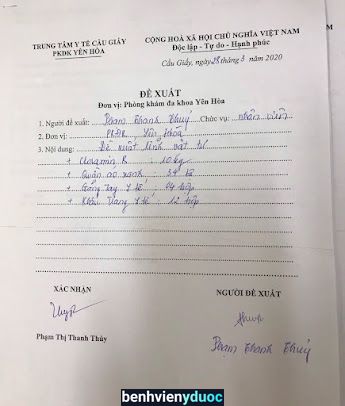 TRUNG TÂM Y TẾ CẦU GIẤY
PKĐK YÊN HÒA
CỘNG HOÀ XÃ HỘI CHỦ NGHĨA VIỆT NAM
Độc lập - Tự do - Hạnh phúc
Cầu Giấy, ngày 28 tháng 3 năm 2020
ĐỀ XUẤT
Đơn vị: Phòng khám đa khoa Yên Hòa
1. Người đề xuất: Phạm Thanh Thuỷ Chức vụ: nhân viên
2. Đơn vị: PKĐK Yên Hoà
3. Nội dung: Đề xuất lĩnh vật tư
+ Cloramin B : 10 kg
+ Quần áo xanh : bộ
+ Găng tay y tế : 04 hộp
+ Khẩu trang y tế : 12 hộp
XÁC NHẬN
NGƯỜI ĐỀ XUẤT
Phạm Thị Thanh Thủy
Phạm Thanh Thuỷ
benhvienyduoc